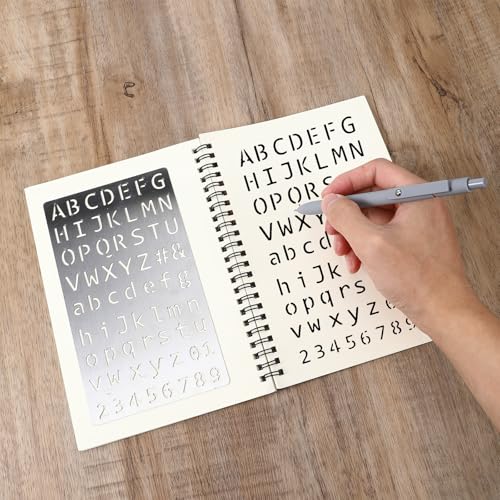 ABCDEFG
HIJKLMN
OPQRSTU
VWXYZ#&
abcdefg
hijklmn
opqrstu
vwxyz01
23456789
ABCDEFG
HIJKLM
OPQRS
VWXY
abcde
hijkl
opqrs
vwxyz
23456789